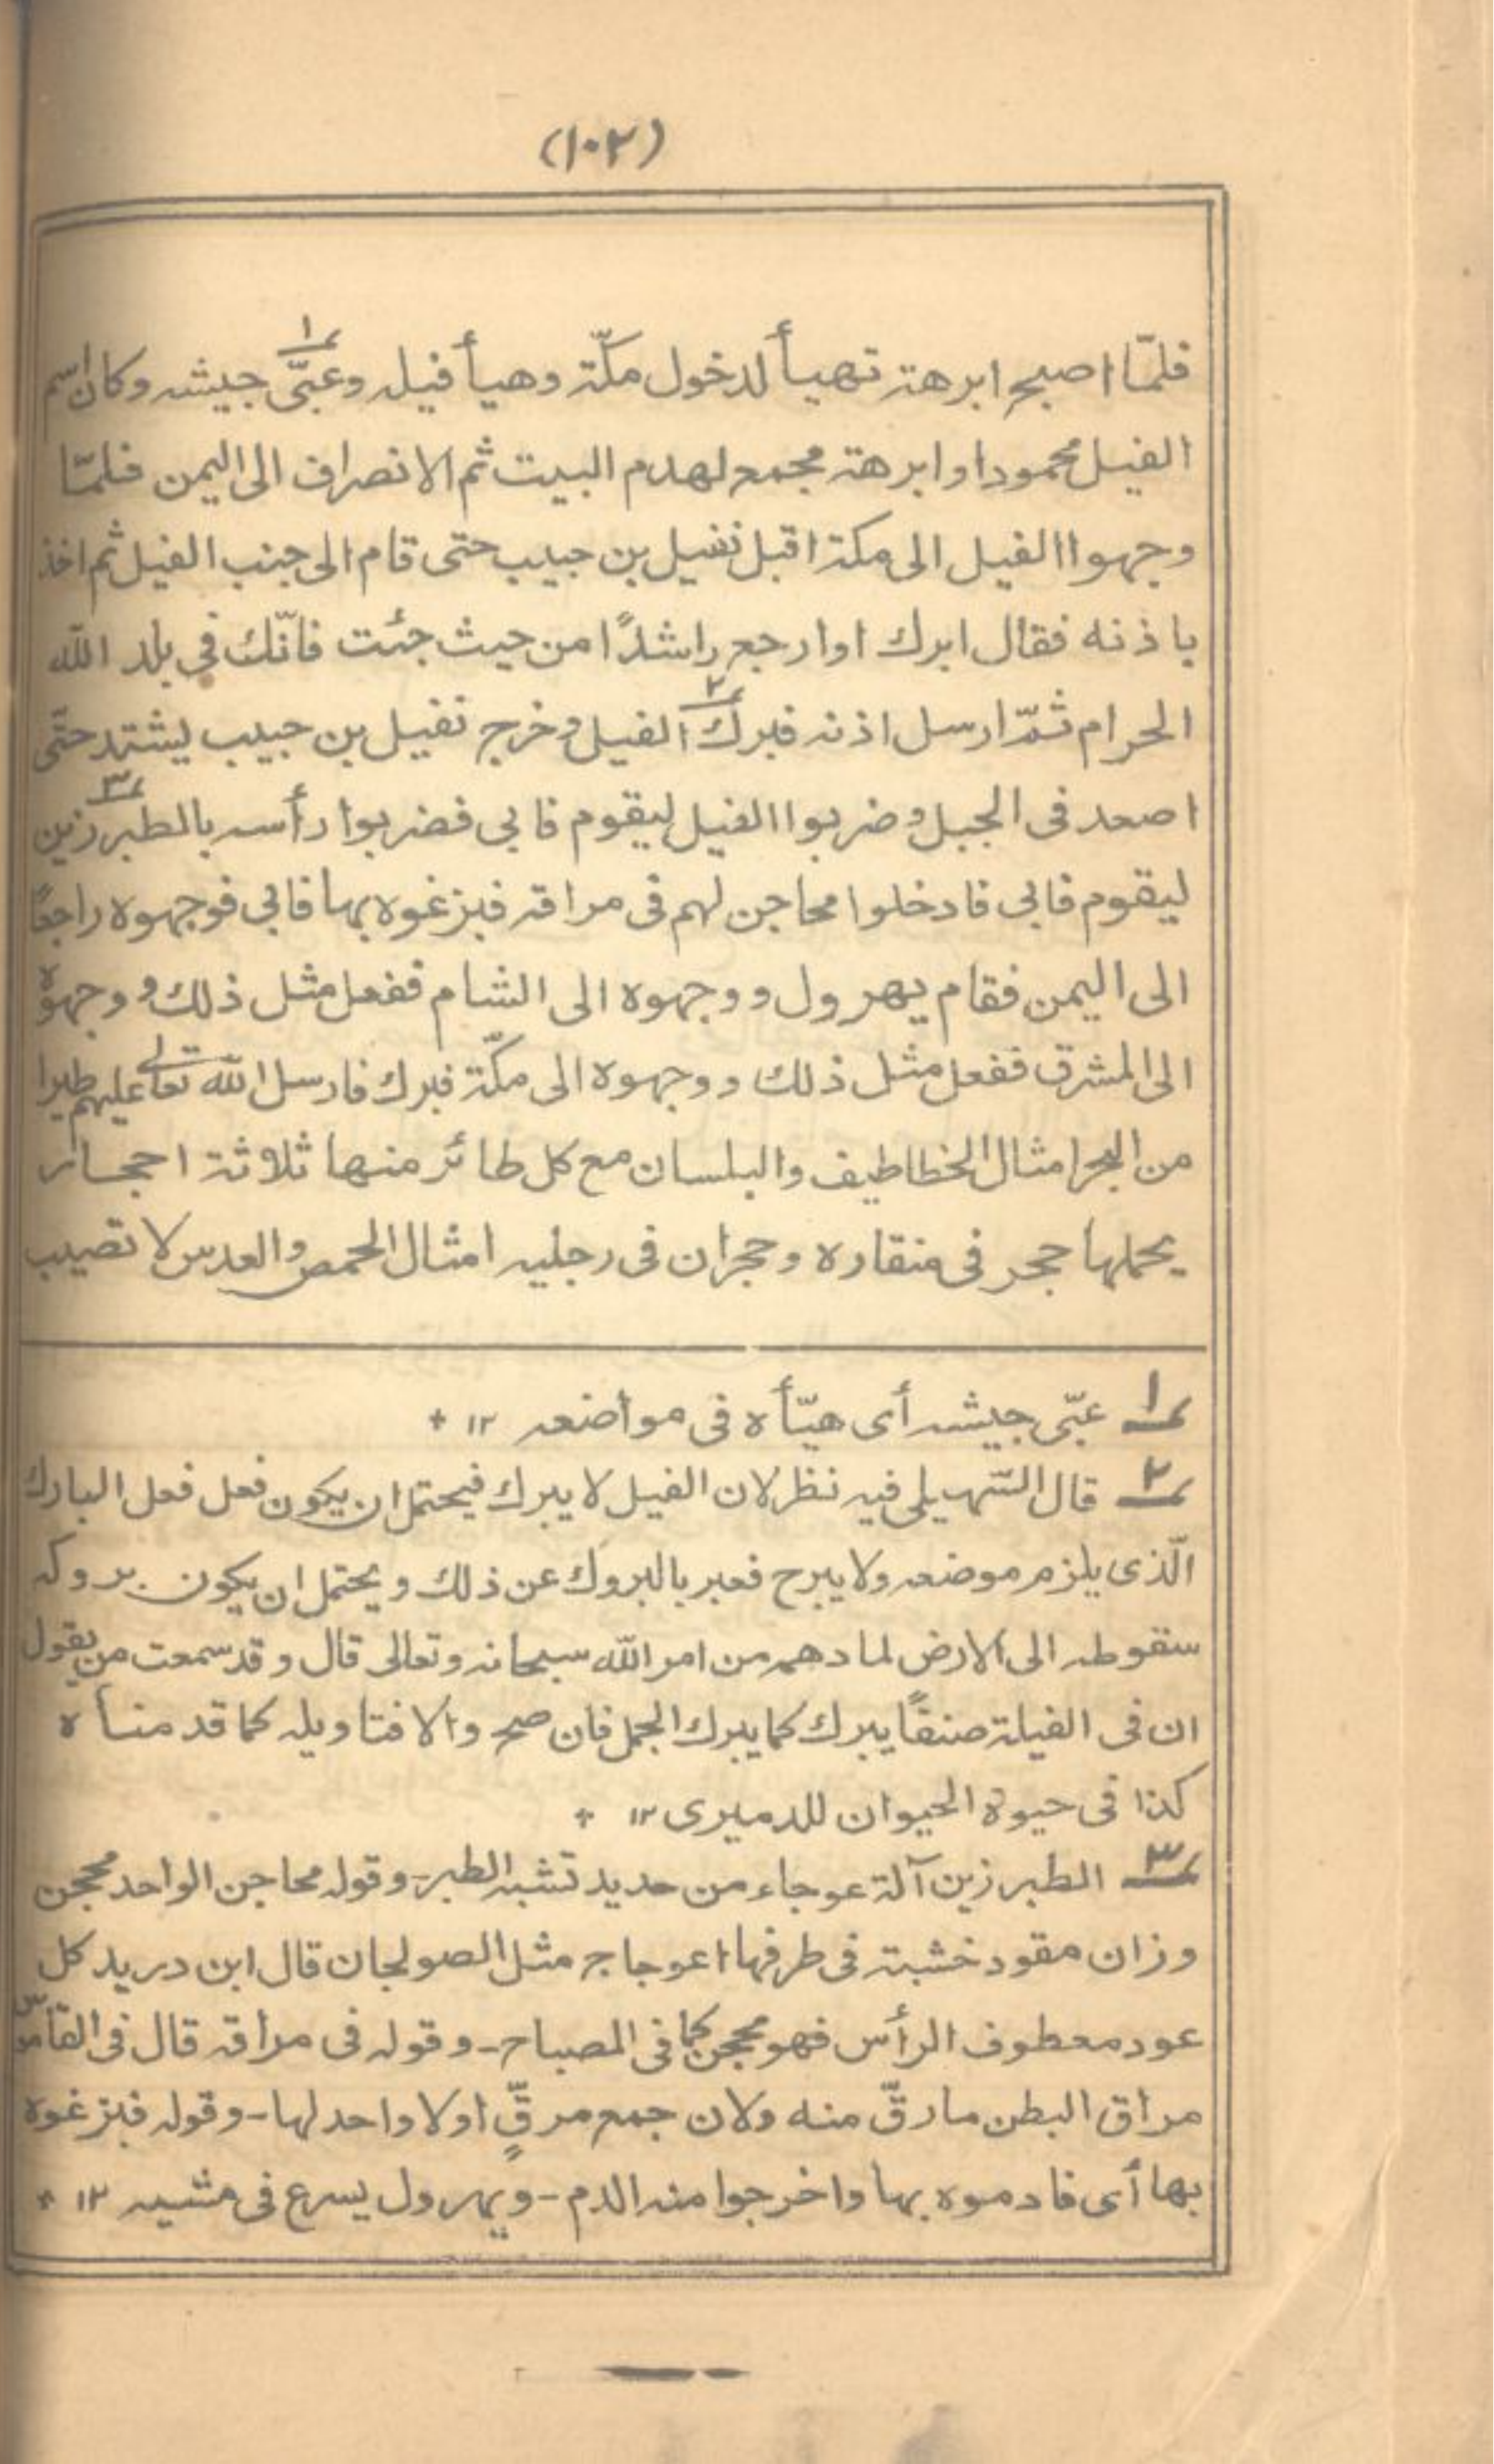 (١٠٢)
فلمّا اصبح ابرهة تهيأ لدخول مكّة وهيأ فيله وعبّى ١ جيشه وكان اسم
الفيل محمودا وابرهة مجمع لهدم البيت ثم الانصراف الى اليمن فلمّا
وجهوا الفيل الى مكة اقبل نفيل بن حبيب حتى قام الى جنب الفيل ثم اخذ
باذنه فقال ابرك اوارجع راشدًا من حيث جئت فانّك في بلد اللّه
الحرام ثمّ ارسل اذنه فبرك ٢ الفيل وخرج نفيل بن حبيب يشتد حتّى
اصعد فى الجبل وضربوا الفيل ليقوم فابى فضربوا رأسه بالطبرزين ٣
ليقوم فابى فادخلوا محاجن لهم فى مراقه فبزغوه بها فابى فوجهوه راجعًا
الى اليمن فقام يهرول ووجهوه الى الشام ففعل مثل ذلك ووجهوه
الى المشرق ففعل مثل ذلك ووجهوه الى مكّة فبرك فارسل اللّه تعالى عليهم طيرا
من البحر امثال الخطاطيف والبلسان مع كل طائر منها ثلاثة احجار
يحملها حجر فى منقاره وحجران فى رجليه امثال الحمص والعدس لا تصيب
١ عبّى جيشه أى هيّأه فى مواضعه ١٢ *
٢ قال السّهيلى فيه نظر لان الفيل لا يبرك فيحتمل ان يكون فعل فعل البارك
الّذى يلزم موضعه ولا يبرح فعبر بالبروك عن ذلك ويحتمل ان يكون بروكه
سقوطه الى الارض لما دهمه من امر اللّه سبحانه وتعالى قال وقد سمعت من يقول
ان فى الفيلة صنفًا يبرك كما يبرك الجمل فان صح والا فتاويله كما قدمنأه
كذا فى حيوة الحيوان للدميرى ١٢ *
٣ الطبرزين آلة عوجاء من حديد تشبه الطبر - وقوله محاجن الواحد محجن
وزان مقود خشبة فى طرفها اعوجاج مثل الصولجان قال ابن دريد كل
عود معطوف الرأس فهو محجن كما فى المصباح - وقوله فى مراقه قال فى القاموس
مراق البطن مارقّ منه ولان جمع مرقٍّ اولا واحد لها - وقوله فبزغوه
بها أى فادموه بها واخرجوا منه الدم - ويهرول يسرع فى مشيه ١٢ *